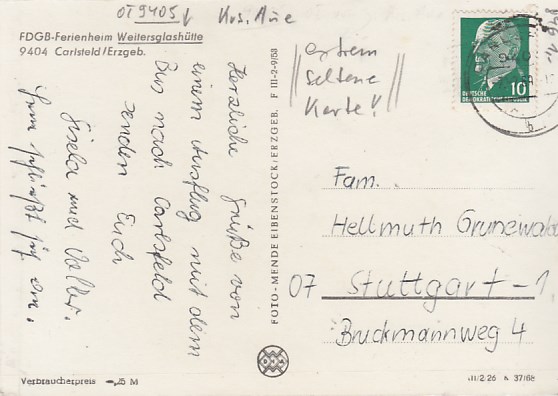 OT 9405
Krs. Aue
FDGB-Ferienheim Weitersglashütte
9404 Carlsfeld/Erzgeb.
extrem
seltene
Karte!
10
DEUTSCHE
DEMOKRATISCHE REPUBLIK
Herzliche Grüße von
einem Ausflug mit dem
Bus nach Carlsfeld
senden Euch
Gisela und
FOTO-MENDE EIBENSTOCK/ERZGEB. F III-2-9/53
Fam.
Hellmuth Grunewald
07 Stuttgart-1
Bruckmannweg 4
Verbraucherpreis -,15 M
III/2/26 A 37/68